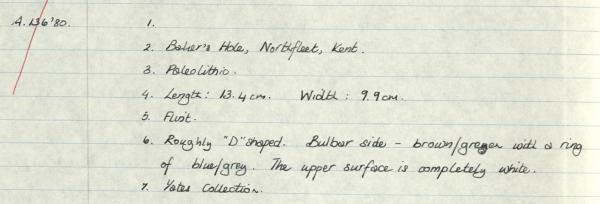 A.136'80. 1.
2. Baker's Hole, Northfleet, Kent.
3. Paleolithic.
4. Length: 13.4cm. Width: 9.9cm.
5. Flint.
6. Roughly "D" shaped. Bulbar side - brown/green with a ring
of blue/grey. The upper surface is completely white.
7. Yates Collection.